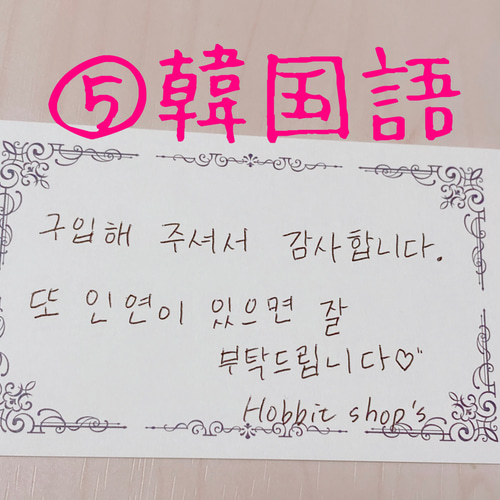 ⑤韓国語
구입해 주셔서 감사합니다.
또 인연이 있으면 잘
부탁드립니다♡"
Hobbit shop's